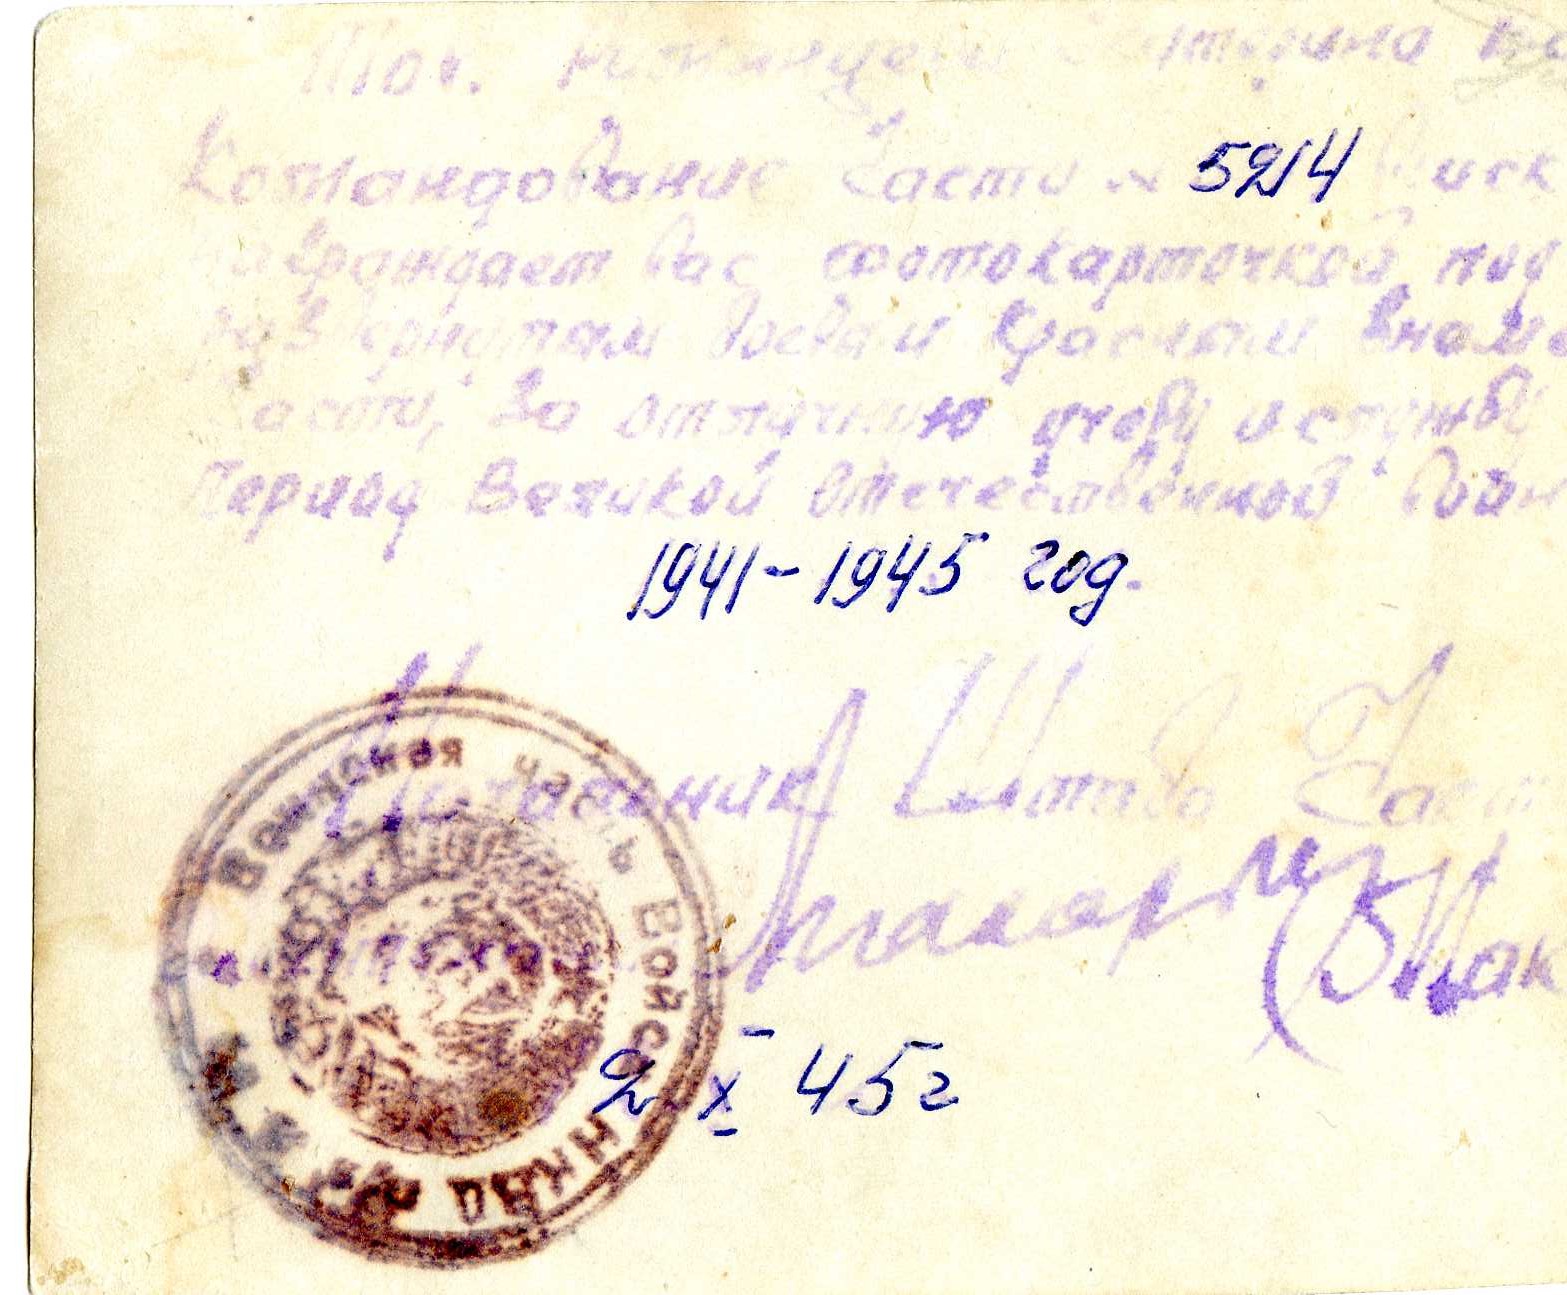 Тов.
Командование Части № 5214 Войск
награждает вас фотокарточкой под
развернутым боевым Красным знаме
части, за отличную учебу и службу
Период Великой Отечественной Войн
1941-1945 год.
Начальник Штаба Част
Войсковая часть Войск НКВД
2 X 45г